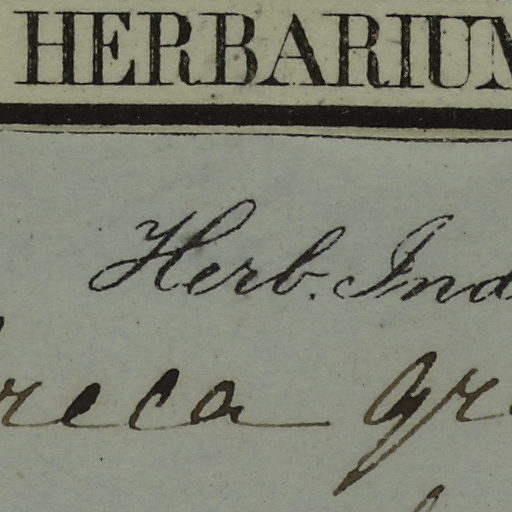 HERBARIUM
Herb. Ind
reca gr